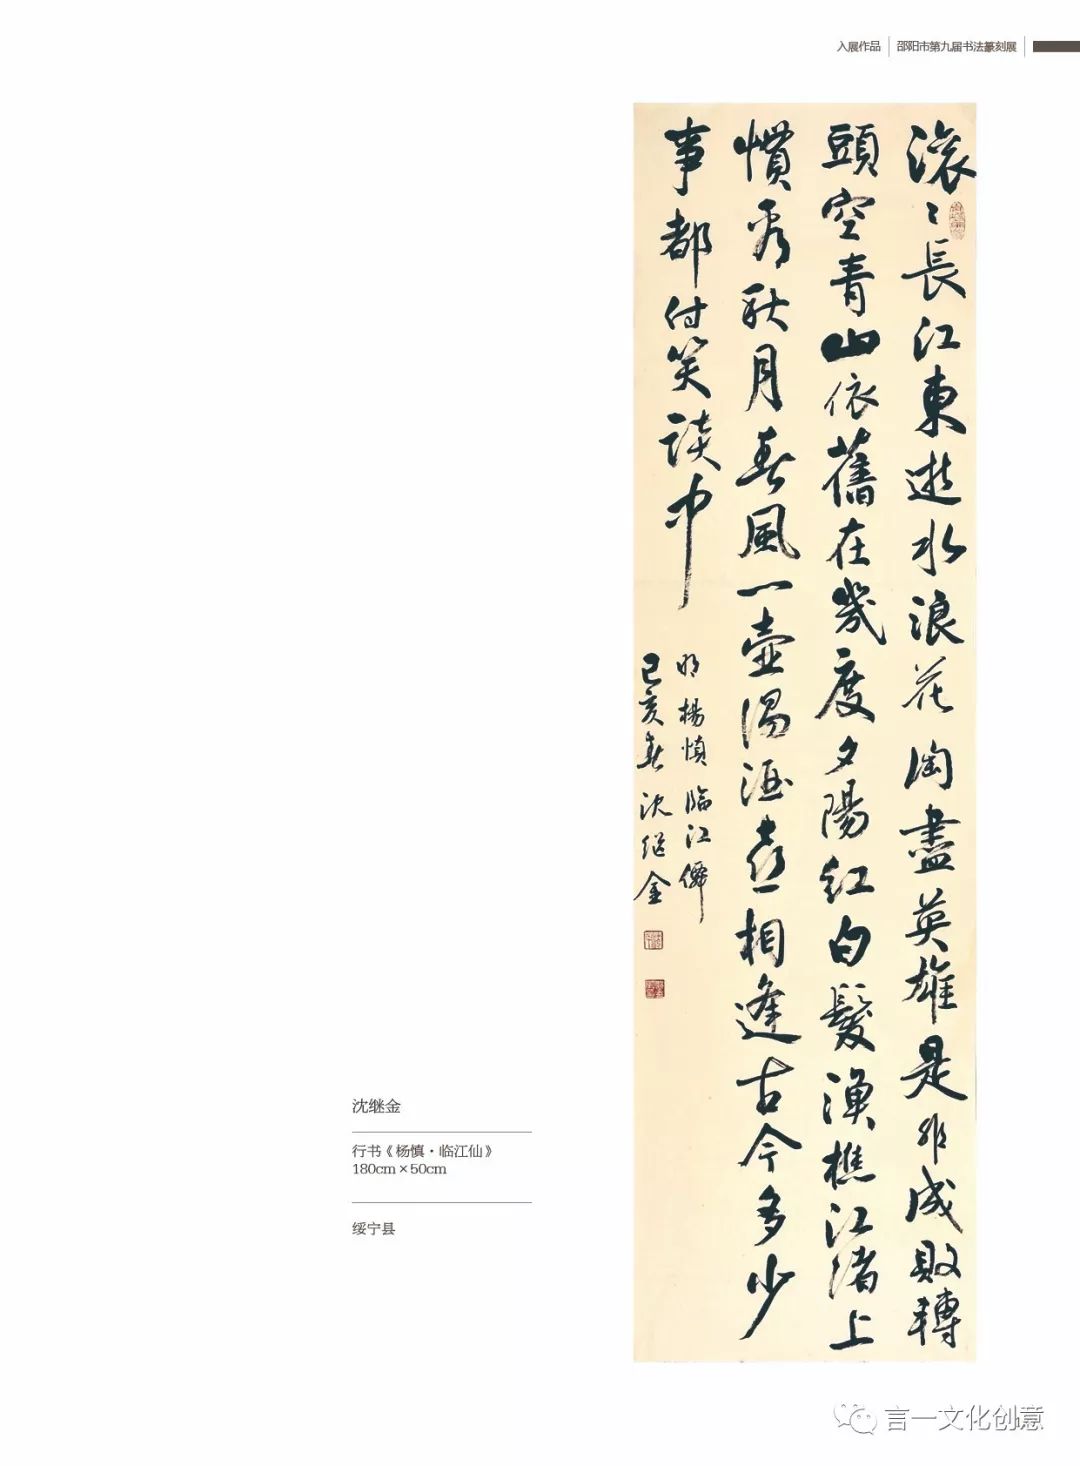 入展作品 邵阳市第九届书法篆刻展
滚〻長江東逝水浪花淘盡英雄是非成敗轉
頭空青山依舊在幾度夕陽紅白髮漁樵江渚上
慣看秋月春風一壺濁酒喜相逢古今多少
事都付笑談中
明楊慎臨江僊
己亥春沈继金
沈继金
行书《杨慎·临江仙》
180cm×50cm
绥宁县
言一文化创意